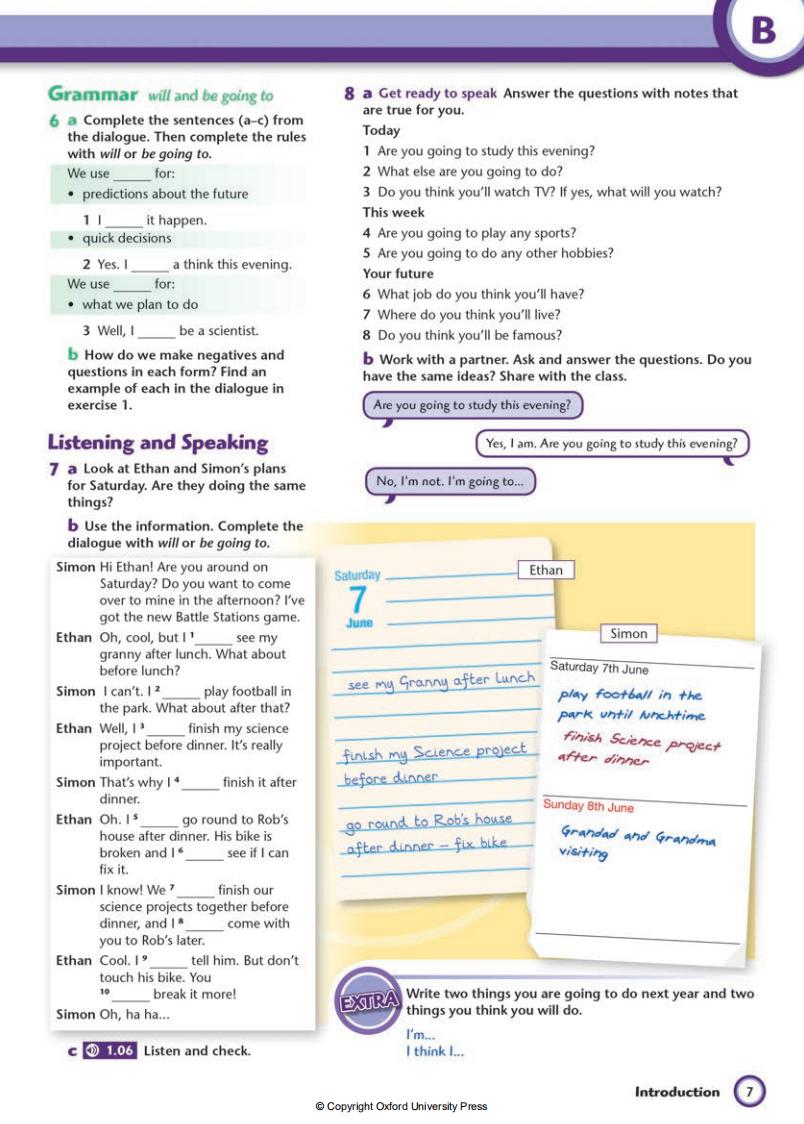 B
Grammar will and be going to
6 a Complete the sentences (a–c) from
the dialogue. Then complete the rules
with will or be going to.
We use _____ for:
• predictions about the future
1 I _____ it happen.
• quick decisions
2 Yes. I _____ a think this evening.
We use _____ for:
• what we plan to do
3 Well, I _____ be a scientist.
b How do we make negatives and
questions in each form? Find an
example of each in the dialogue in
exercise 1.
Listening and Speaking
7 a Look at Ethan and Simon's plans
for Saturday. Are they doing the same
things?
b Use the information. Complete the
dialogue with will or be going to.
Simon Hi Ethan! Are you around on
Saturday? Do you want to come
over to mine in the afternoon? I've
got the new Battle Stations game.
Ethan Oh, cool, but I ¹_____ see my
granny after lunch. What about
before lunch?
Simon I can't. I ²_____ play football in
the park. What about after that?
Ethan Well, I ³_____ finish my science
project before dinner. It's really
important.
Simon That's why I ⁴_____ finish it after
dinner.
Ethan Oh. I ⁵_____ go round to Rob's
house after dinner. His bike is
broken and I ⁶_____ see if I can
fix it.
Simon I know! We ⁷_____ finish our
science projects together before
dinner, and I ⁸_____ come with
you to Rob's later.
Ethan Cool. I ⁹_____ tell him. But don't
touch his bike. You
¹⁰_____ break it more!
Simon Oh, ha ha...
c 1.06 Listen and check.
8 a Get ready to speak Answer the questions with notes that
are true for you.
Today
1 Are you going to study this evening?
2 What else are you going to do?
3 Do you think you'll watch TV? If yes, what will you watch?
This week
4 Are you going to play any sports?
5 Are you going to do any other hobbies?
Your future
6 What job do you think you'll have?
7 Where do you think you'll live?
8 Do you think you'll be famous?
b Work with a partner. Ask and answer the questions. Do you
have the same ideas? Share with the class.
Are you going to study this evening?
Yes, I am. Are you going to study this evening?
No, I'm not. I'm going to...
Ethan
Saturday
7
June
see my Granny after lunch
finish my Science project
before dinner
go round to Rob's house
after dinner – fix bike
Simon
Saturday 7th June
play football in the
park until lunchtime
finish Science project
after dinner
Sunday 8th June
Grandad and Grandma
visiting
EXTRA
Write two things you are going to do next year and two
things you think you will do.
I'm...
I think I...
Introduction 7
© Copyright Oxford University Press